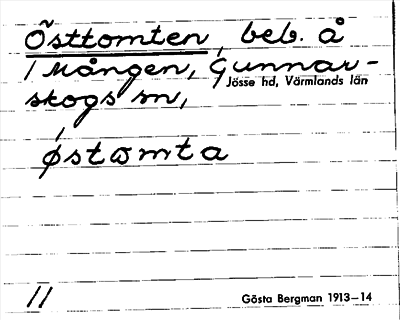 Östtomten, beb. å
/ Mången, Gunnar-
Jösse hd, Värmlands län
skogs sn,
østωmta
//
Gösta Bergman 1913–14